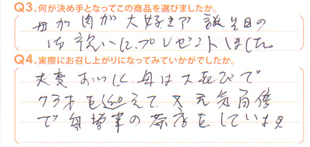 Q3.何が決め手となってこの商品を選びましたか。
母が肉が大好きで誕生日の
お祝いにプレゼントしました。
Q4.実際にお召し上がりになってみていかがでしたか。
大変おいしく母は大喜びで
クラオを迎えて又元気百倍
で自営業の店をしています